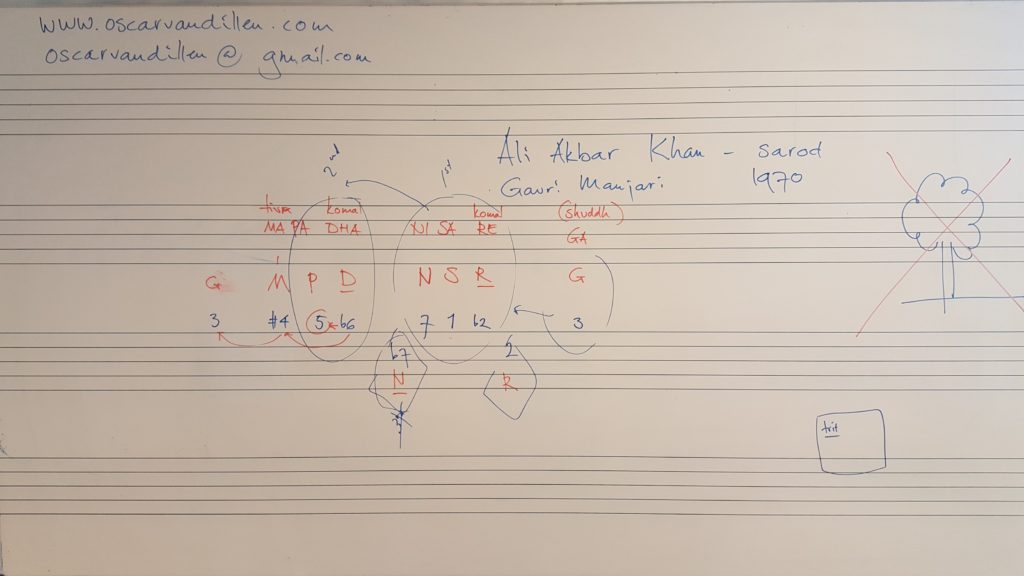 www.oscarvandillen.com
oscarvandillen@gmail.com
Ali Akbar Khan - sarod
Gauri Manjari 1970
2nd 1st
tivra komal komal (shuddh)
MA PA DHA NI SA RE GA
G M P D N S R G
3 #4 5 b6 7 1 b2 3
b7 2
N R
trit